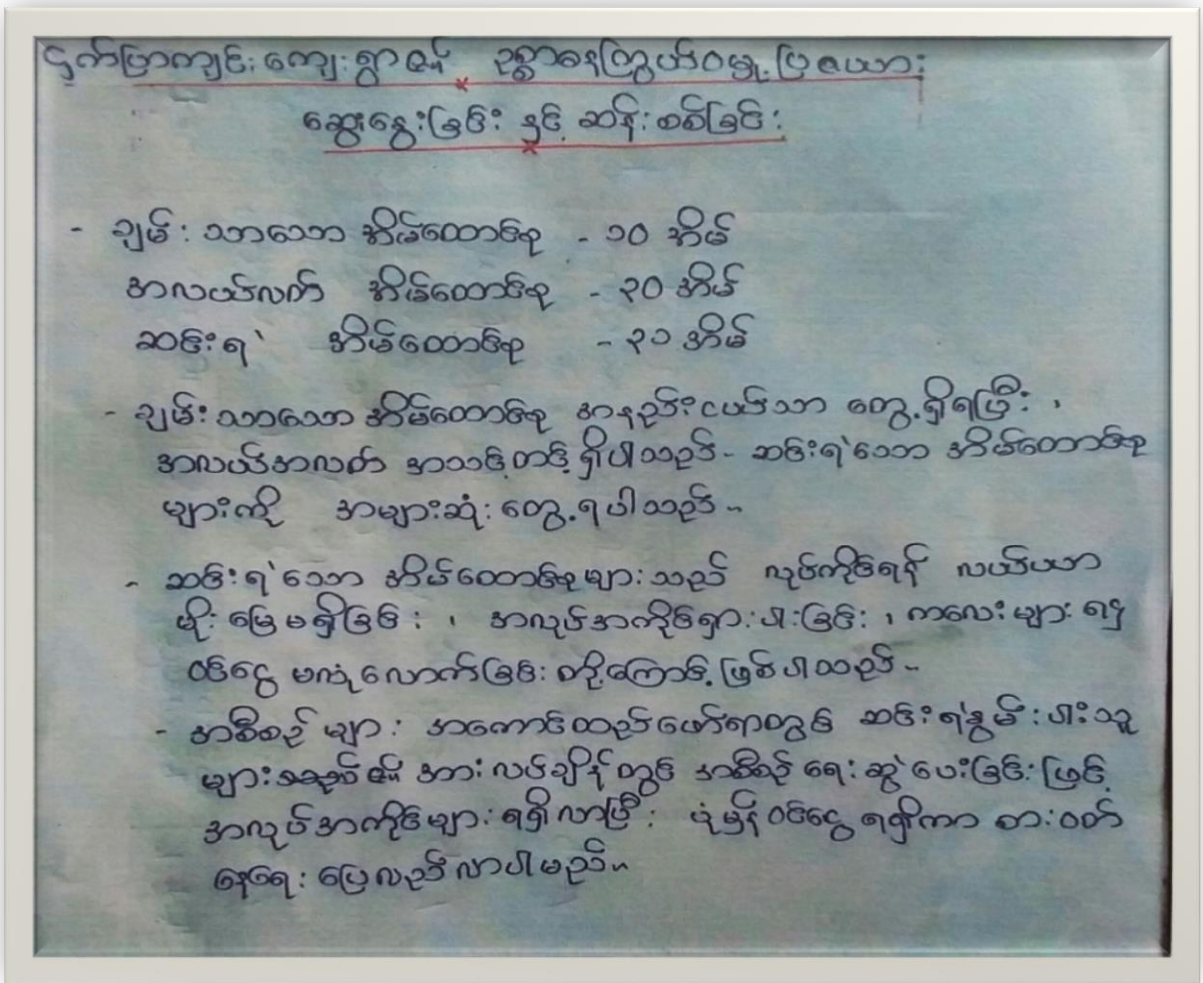 ငှက်ပြာကျင်းကျေးရွာ၏ ဥစ္စာဓနကြွယ်ဝမှု ပြဇယား
ဆွေးနွေးခြင်း နှင့် ဆန်းစစ်ခြင်း
- ချမ်းသာသော အိမ်ထောင်စု - ၁၀ အိမ်
အလယ်လတ် အိမ်ထောင်စု - ၃၀ အိမ်
ဆင်းရဲ အိမ်ထောင်စု - ၃၁ အိမ်
- ချမ်းသာသော အိမ်ထောင်စု အနည်းငယ်သာ တွေ့ရှိရပြီး ၊
အလယ်အလတ် အသင့်တင့် ရှိပါသည်- ဆင်းရဲသော အိမ်ထောင်စု
များကို အများဆုံး တွေ့ရပါသည်။
- ဆင်းရဲသော အိမ်ထောင်စုများသည် လုပ်ကိုင်ရန် လယ်ယာ
စိုးမြေမရှိခြင်း ၊ အလုပ်အကိုင်ရှားပါးခြင်း ၊ ကလေးများ
ဝင်ငွေ မလုံလောက်ခြင်းတို့ကြောင့် ဖြစ်ပါသည်။
- အစီစဉ်များ အကောင်ထည်ဖော်ရာတွင် ဆင်းရဲနွမ်းပါးသူ
များ၏ အားလပ်ချိန်တွင် အစီစဉ် ရေးဆွဲပေးခြင်းဖြင့်
အလုပ်အကိုင်များ ရရှိလာပြီး ပုံမှန်ဝင်ငွေ ရရှိကာ စားဝတ်
နေရေး ပြေလည်လာပါမည်။